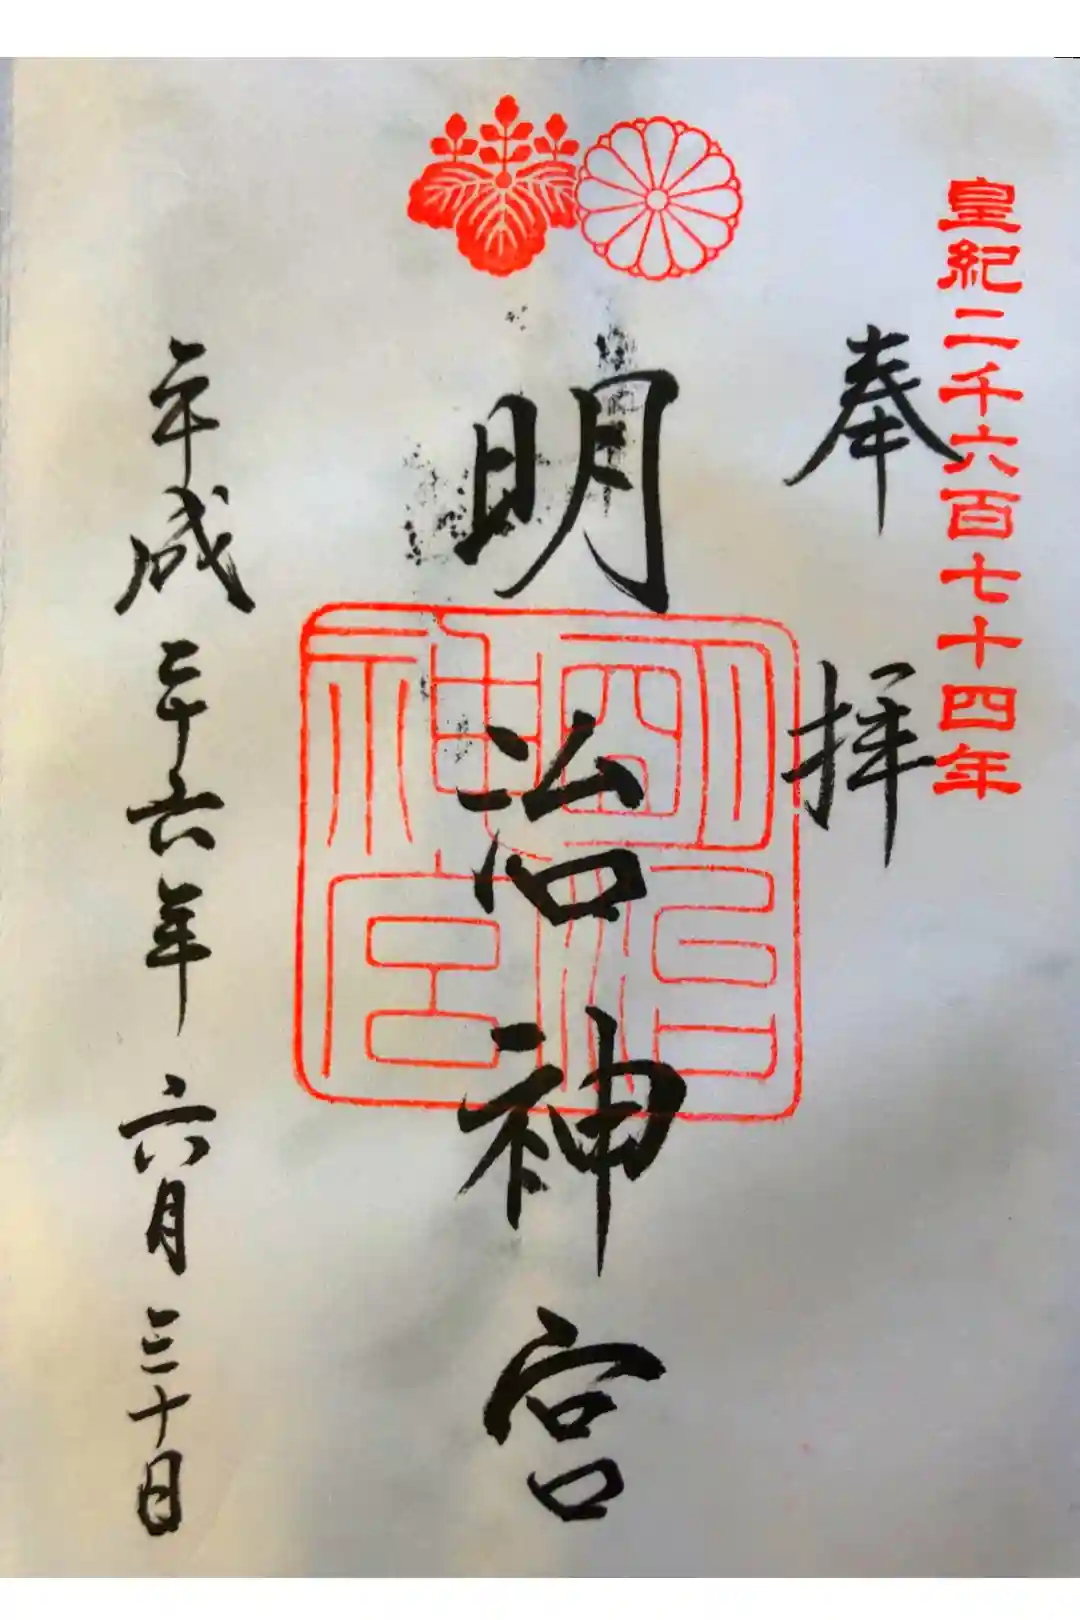 皇紀二千六百七十四年
奉拝
明治神宮
明治神宮
平成二十六年六月三十日